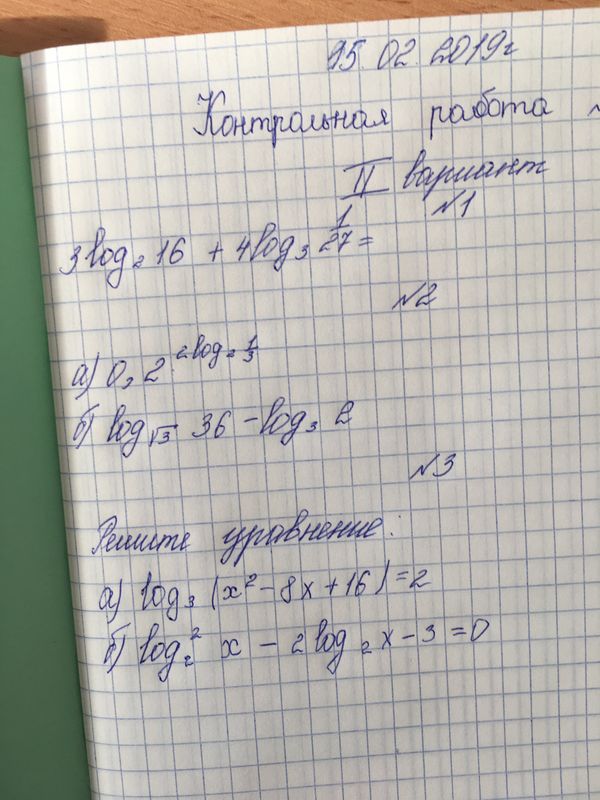 15.02.2019г
Контрольная работа
II вариант
№1
3log₂16 + 4log₃ 1/27 =
№2
а) 0,2^(2log₂ 1/3)
б) log_√3 36 - log₃ 2
№3
Решите уравнение:
а) log₃ (x² - 8x + 16) = 2
б) log₂² x - 2log₂x - 3 = 0